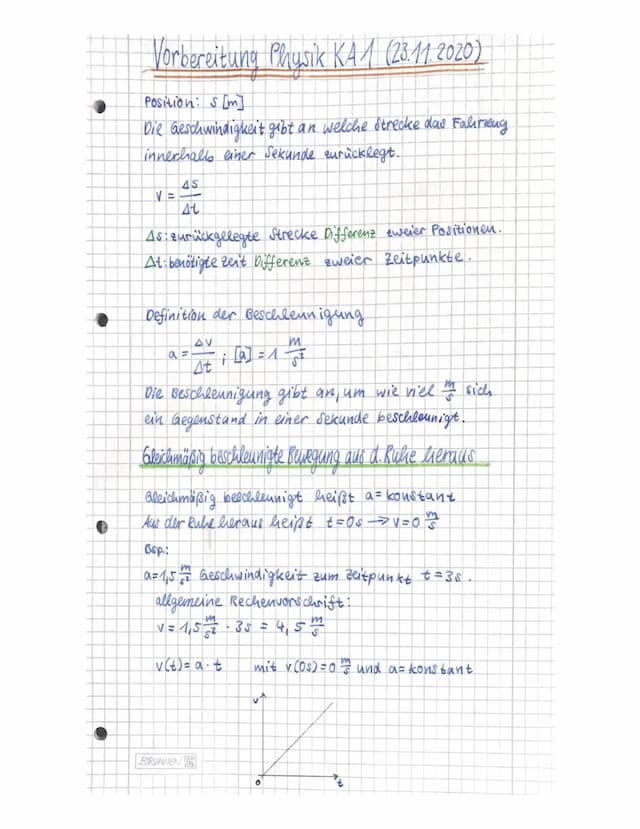 Vorbereitung Physik KA1 (23.11.2020)
Position: s [m]
Die Geschwindigkeit gibt an welche Strecke das Fahrzeug
innerhalb einer Sekunde zurücklegt.
v = Δs/Δt
Δs: zurückgelegte Strecke Differenz zweier Positionen.
Δt: benötigte Zeit Differenz zweier Zeitpunkte.
Definition der Beschleunigung
a = Δv/Δt ; [a] = 1 m/s²
Die Beschleunigung gibt an, um wie viel m/s sich
ein Gegenstand in einer Sekunde beschleunigt.
Gleichmäßig beschleunigte Bewegung aus d. Ruhe heraus
Gleichmäßig beschleunigt heißt a = konstant
Aus der Ruhe heraus heißt t = 0s → v = 0 m/s
Bsp.:
a = 1,5 m/s² Geschwindigkeit zum Zeitpunkt t = 3s.
allgemeine Rechenvorschrift:
v = 1,5 m/s² · 3s = 4,5 m/s
v(t) = a · t mit v(0s) = 0 m/s und a = konstant
v
0 t
BRUNNEN